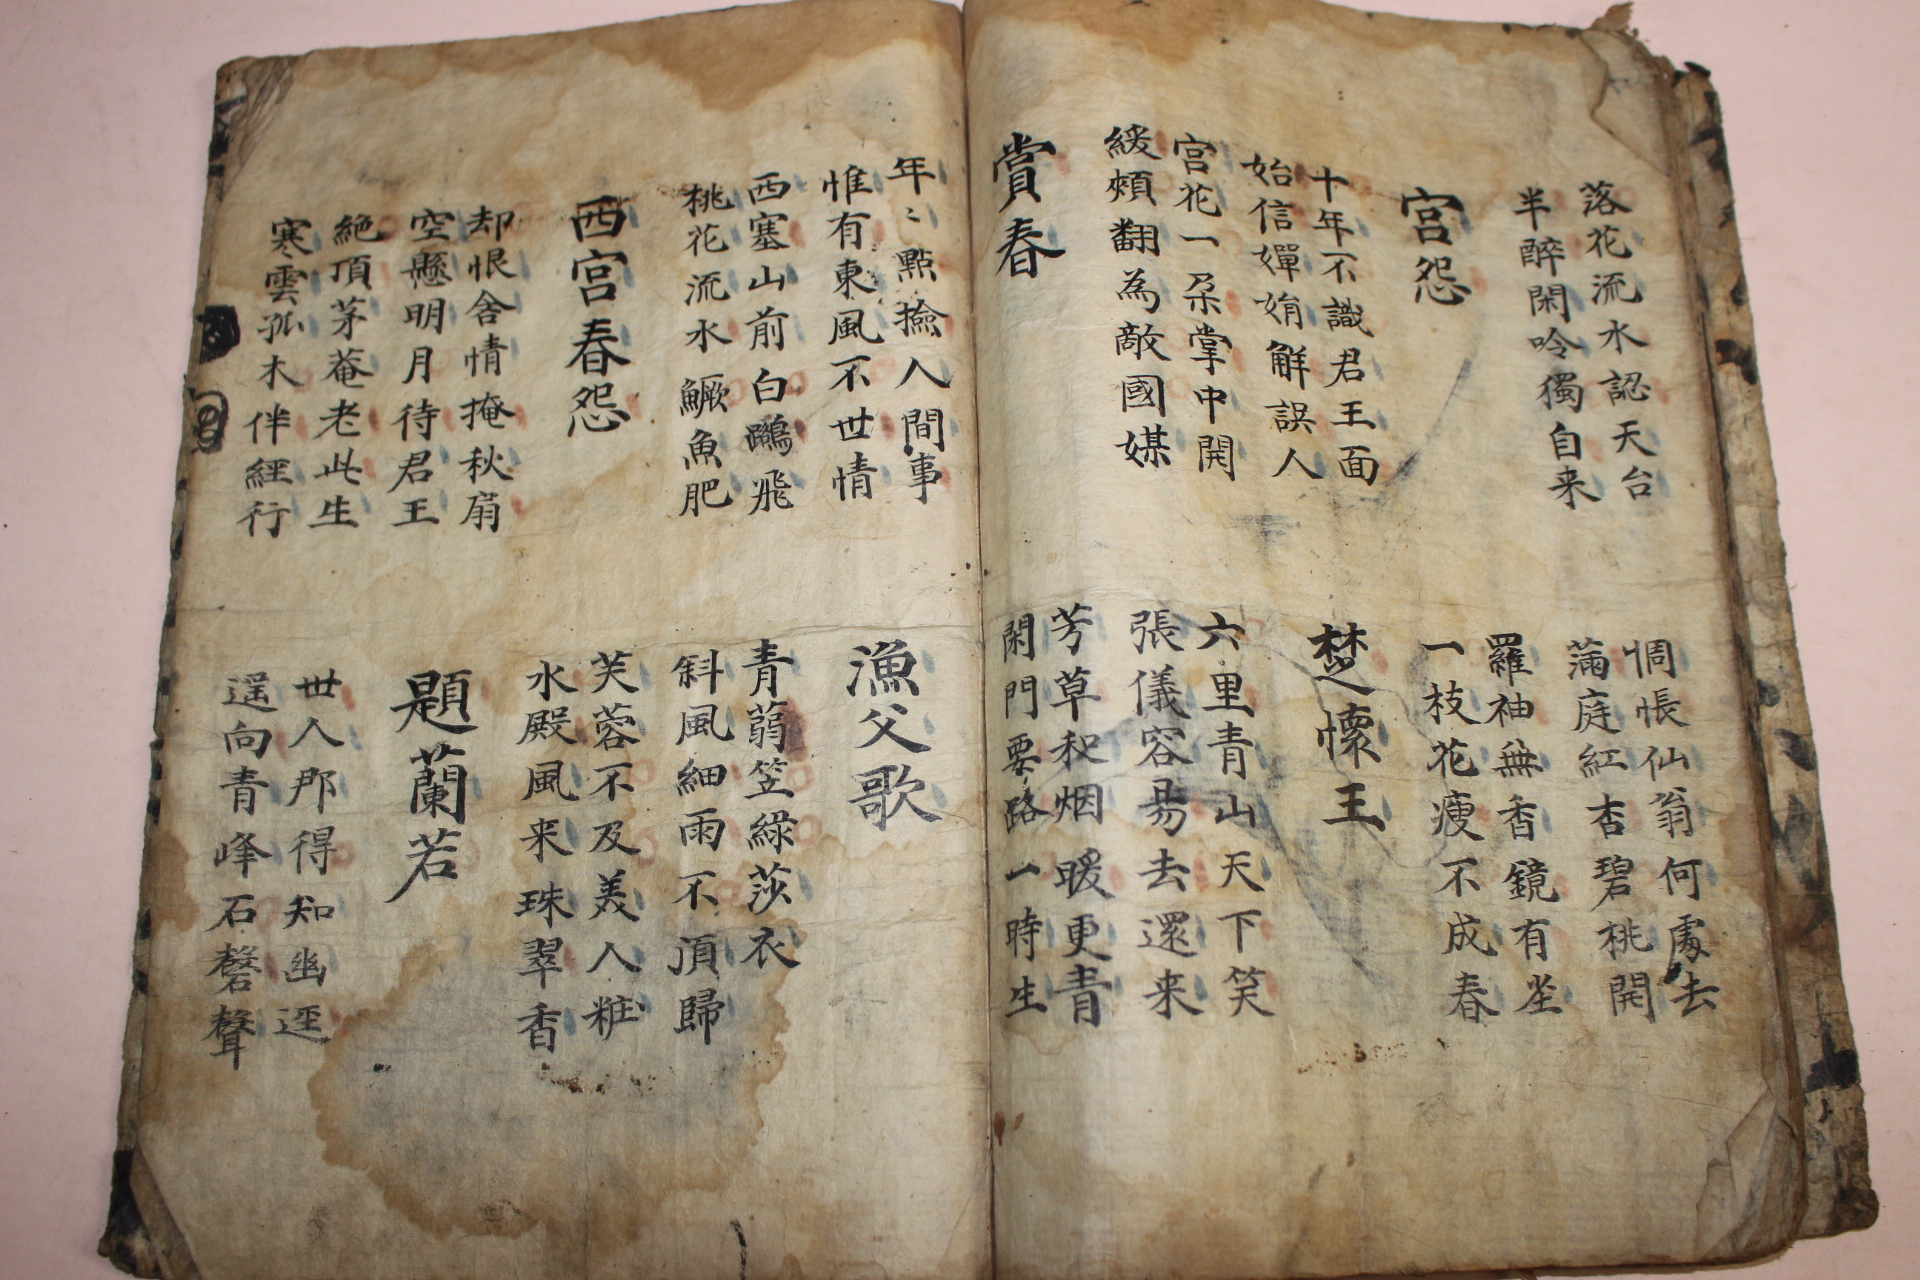 落花流水認天台
半醉閑吟獨自来
惆悵仙翁何處去
滿庭紅杏碧桃開
宮怨
羅袖無香鏡有坐
一枝花瘦不成春
十年不識君王面
始信嬋娟解誤人
楚懷王
宮花一朶掌中開
緩頰翻為敵國媒
六里青山天下笑
張儀容易去還来
賞春
芳草和烟暖更青
閑門要路一時生
年〻點撿人間事
惟有東風不世情
漁父歌
西塞山前白鷗飛
桃花流水鱖魚肥
青蒻笠綠莎衣
斜風細雨不頂歸
西宮春怨
芙蓉不及美人粧
水殿風来珠翠香
却恨舍情掩秋扇
空懸明月待君王
題蘭若
絶頂茅菴老此生
寒雲孤木伴經行
世人那得知幽逕
遥向青峰石磬聲